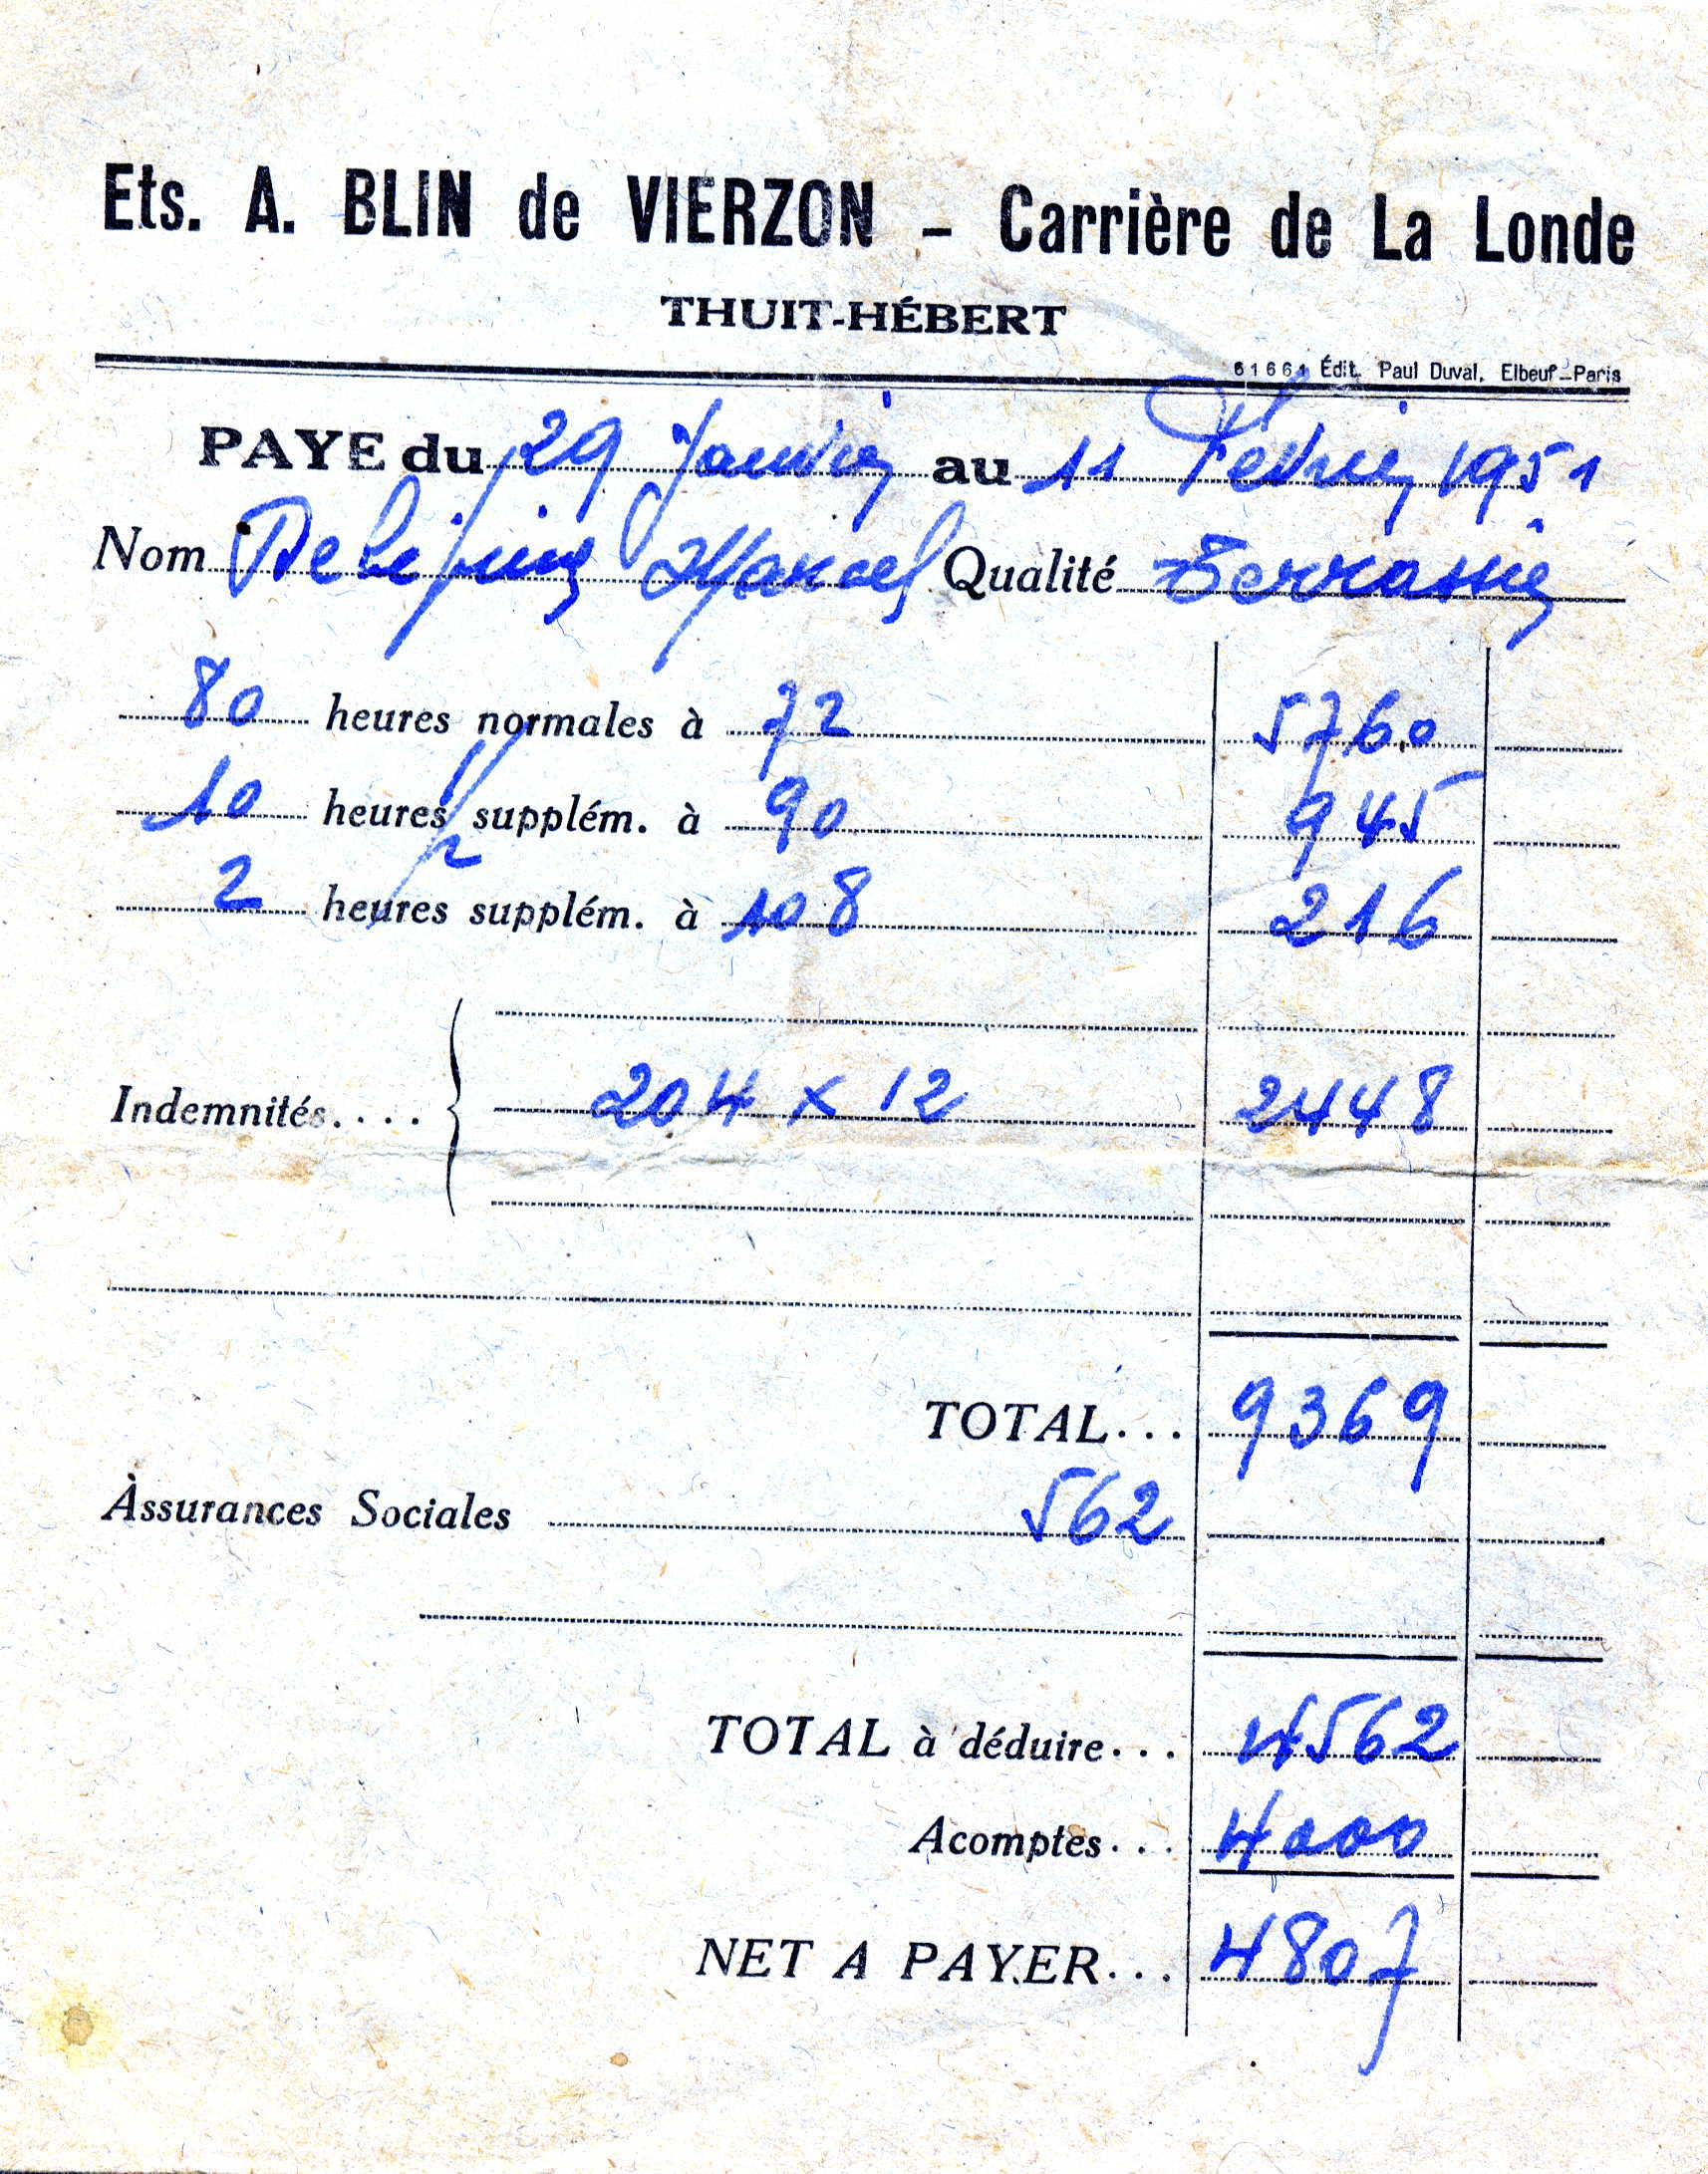 Ets. A. BLIN de VIERZON – Carrière de La Londe
THUIT-HÉBERT
61661 Édit. Paul Duval, Elbeuf-Paris
PAYE du 29 Janvier au 11 Février 1951
Nom Delépine Marcel Qualité Terrassier
80 heures normales à 72 5760
10 1/2 heures supplém. à 90 945
2 heures supplém. à 108 216
Indemnités.... 204 x 12 2448
TOTAL... 9369
Assurances Sociales 562
TOTAL à déduire... 4562
Acomptes... 4000
NET A PAYER... 4807